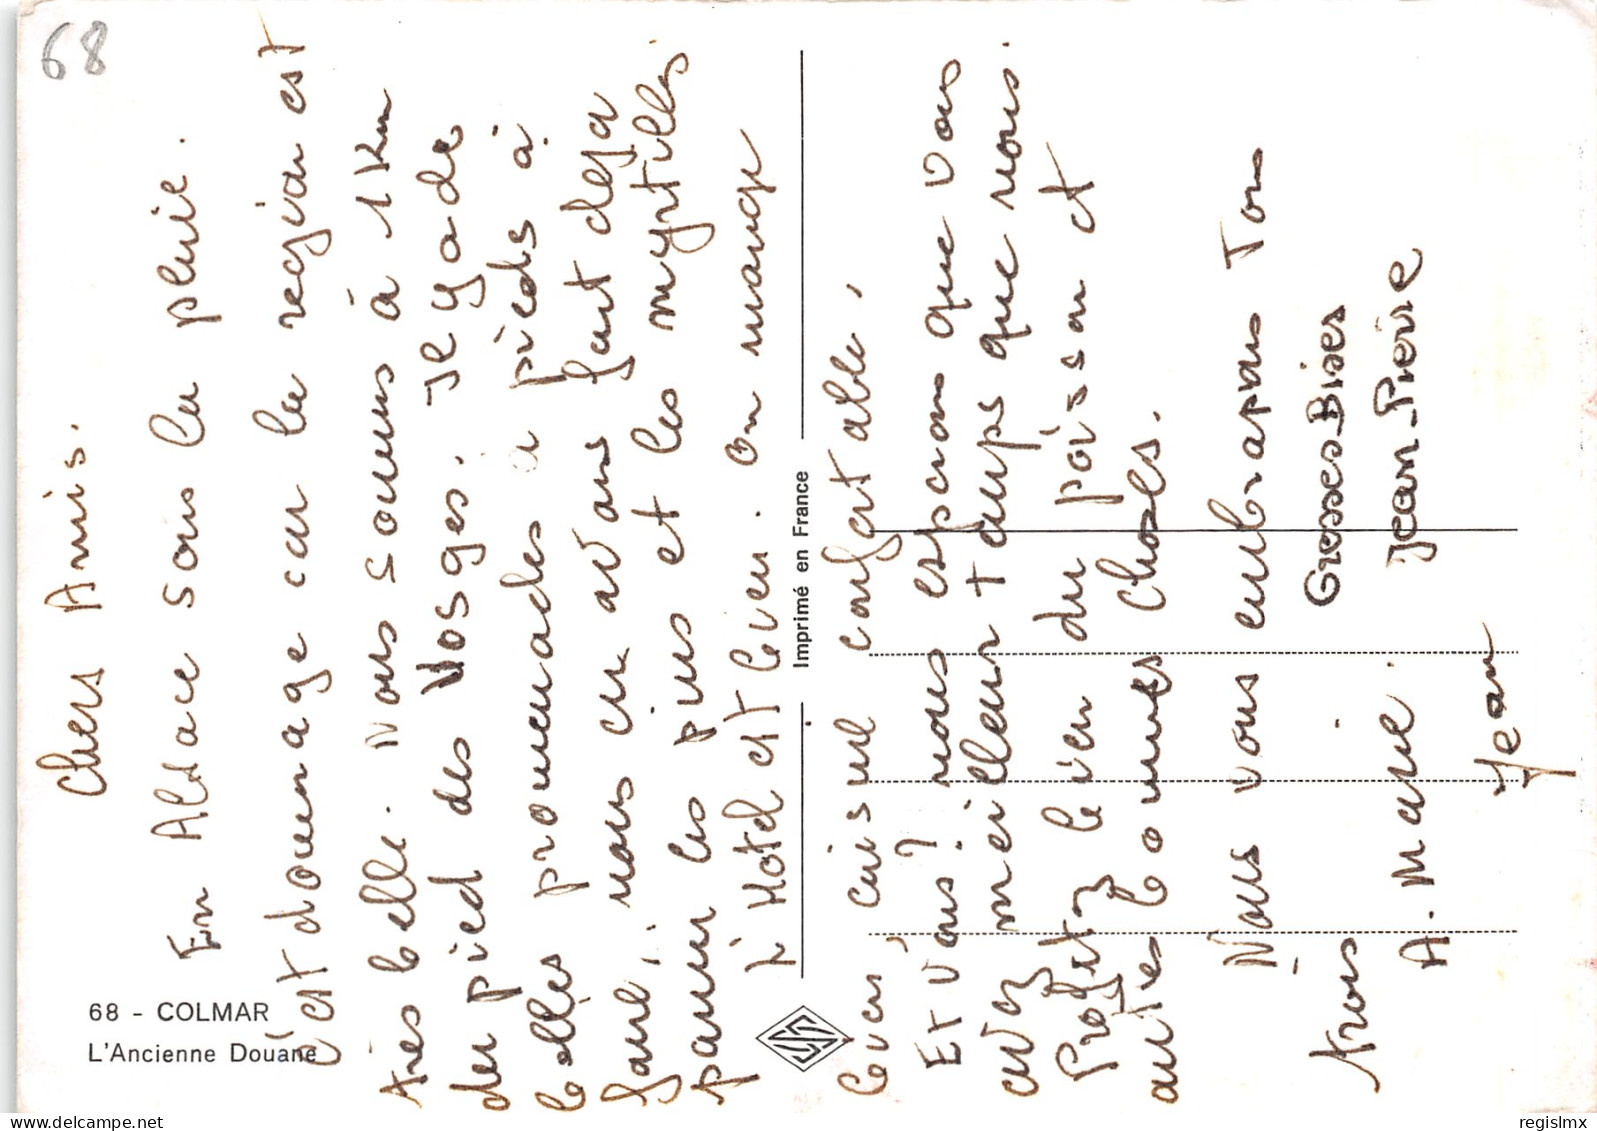 68
Chers Amis.
En Alsace sous la pluie.
c'est dommage car la region est
très belle. Nous sommes à 1 Km
du pied des Vosges. Je Y a de
belles promenades a pieds à
faire, nous en avons fait deja
parmi les pins et les myrtilles
L'Hotel est bien. on mange
bien, cuisine confortable,
Et vous? nous esperons que vous
avez meilleur temps que nous.
Profitez bien du poisson et
autres bonnes choses.
Nous vous embrassons Tous
Trois
Grosses Bises
A. Marie.
Jean-Pierre
Jean
68 - COLMAR
L'Ancienne Douane
Imprimé en France
delcampe.net
regislmx